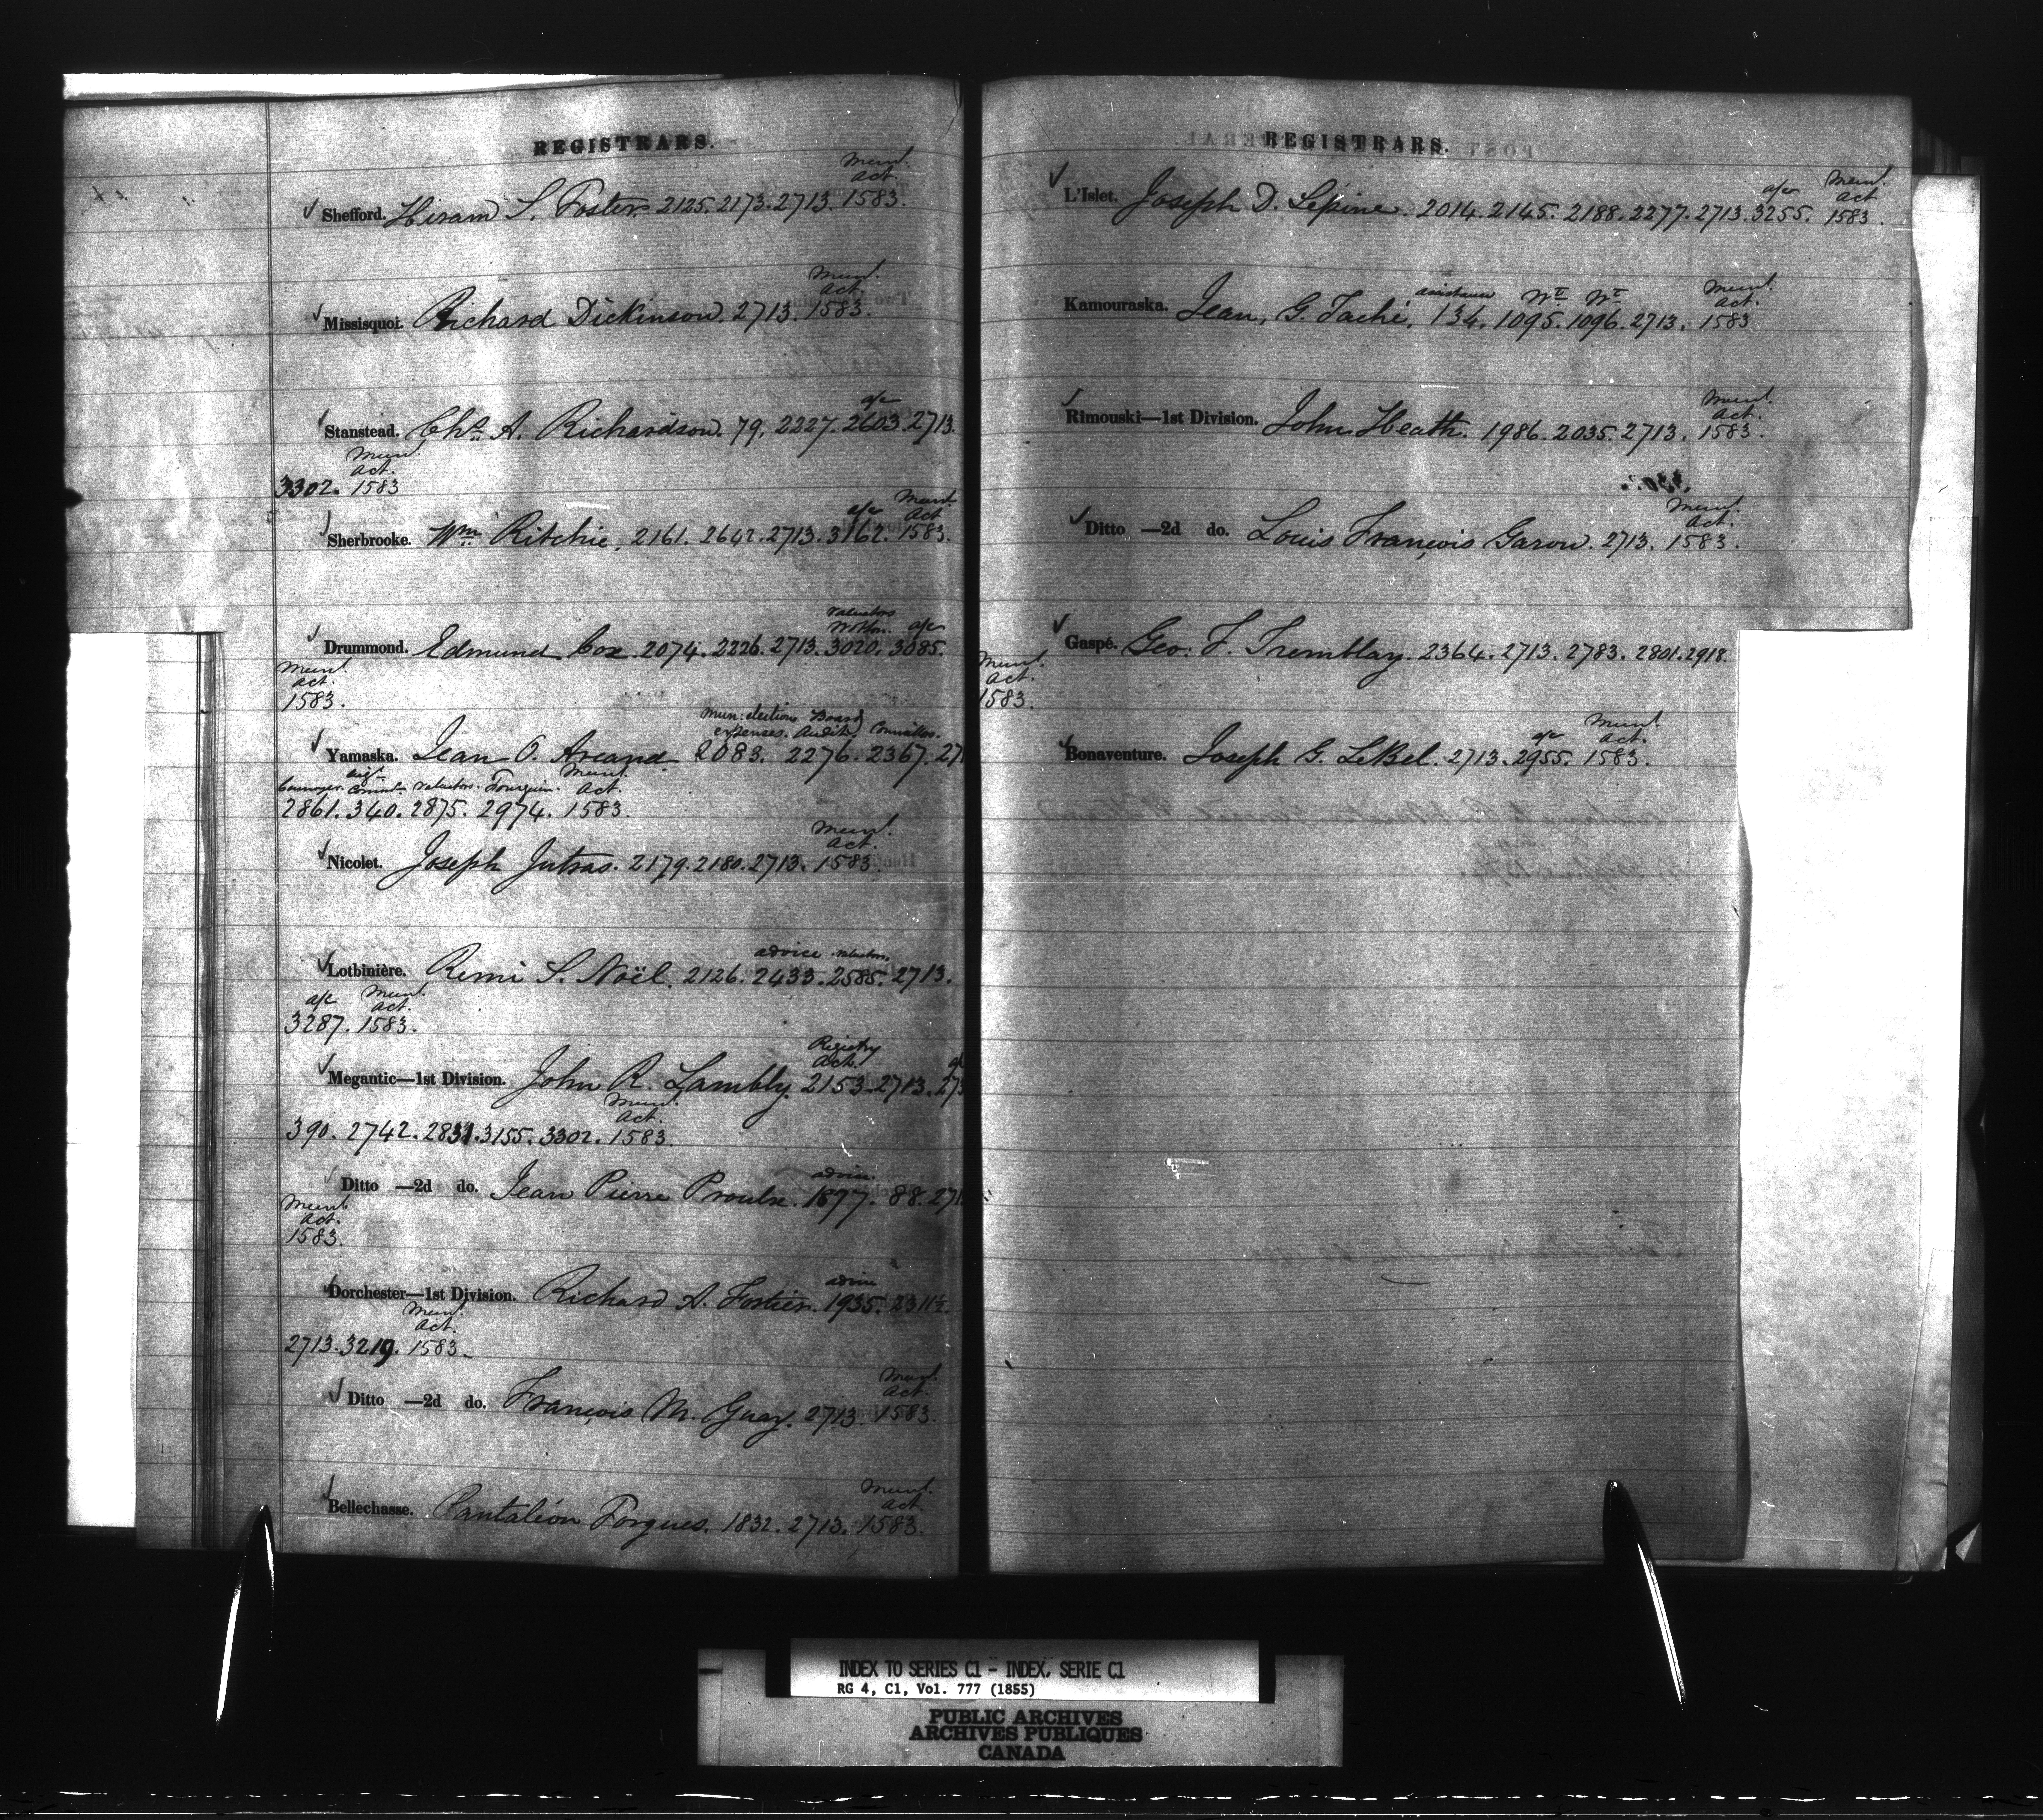 REGISTRARS.
Mun.l
act.
✓ Shefford. Hiram S. Foster. 2125. 2173. 2713. 1583.
Mun.l
act.
✓ Missisquoi. Richard Dickinson. 2713. 1583.
a/c
✓ Stanstead. Chs. A. Richardson. 79. 2227. 2603. 2713.
Mun.l
act.
3302. 1583
a/c Mun.l
Act
✓ Sherbrooke. Wm. Ritchie. 2161. 2642. 2713. 3162. 1583.
Valuators
Wotton. a/c
✓ Drummond. Edmund Cox. 2074. 2226. 2713. 3020. 3085.
Mun.l
act.
1583.
Mun: elections Board
expenses. Audit. Councillors.
✓ Yamaska. Jean O. Arcand 2083. 2276. 2367. 27
Valuators. Fourquin. Mun.l
Act.
2861. 340. 2875. 2974. 1583.
Mun.l
Act.
✓ Nicolet. Joseph Jutras. 2179. 2180. 2713. 1583
advice valuators.
✓ Lotbinière. Remi S. Noël. 2126. 2433. 2585. 2713.
a/c Mun.l
act.
3287. 1583.
Registry
Act.
✓ Megantic—1st Division. John R. Lambly. 2153. 2713. 273
Mun.l
Act.
390. 2742. 2831. 3155. 3302. 1583.
advice.
✓ Ditto —2d do. Jean Pierre Proulx. 1877. 88. 271
Mun.l
Act.
1583.
advice
✓ Dorchester—1st Division. Richard A. Fortier. 1935. 2311½.
Mun.l
act.
2713. 3219. 1583.
Mun.l
Act.
✓ Ditto —2d do. François M. Guay. 2713 1583.
Mun.l
act.
✓ Bellechasse. Pantaléon Forgues. 1832. 2713. 1583.
REGISTRARS.
a/c Mun.l
Act
✓ L'Islet. Joseph D. Lépine. 2014. 2145. 2188. 2277. 2713. 3255. 1583.
assistance Wt Wt Mun.l
act.
Kamouraska. Jean. G. Taché. 134. 1095. 1096. 2713. 1583
Mun.l
Act.
✓ Rimouski—1st Division. John Heath. 1986. 2035. 2713. 1583.
Mun.l
Act.
✓ Ditto —2d do. Louis François Garon. 2713. 1583.
✓ Gaspé. Geo: F. Tremblay. 2364. 2713. 2783. 2801. 2918.
Mun.l
act.
1583.
a/c Mun.l
Act.
✓ Bonaventure. Joseph G. LeBel. 2713. 2955. 1583.
INDEX TO SERIES C1 - INDEX, SERIE C1
RG 4, C1, Vol. 777 (1855)
PUBLIC ARCHIVES
ARCHIVES PUBLIQUES
CANADA